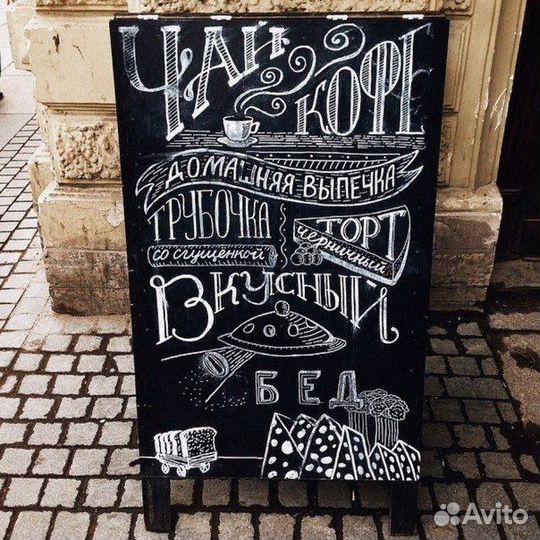 ЧАЙ
КОФЕ
ДОМАШНЯЯ ВЫПЕЧКА
ТРУБОЧКА
со сгущёнкой
ТОРТ
черничный
ВКУСНЫЙ
ОБЕД
Avito